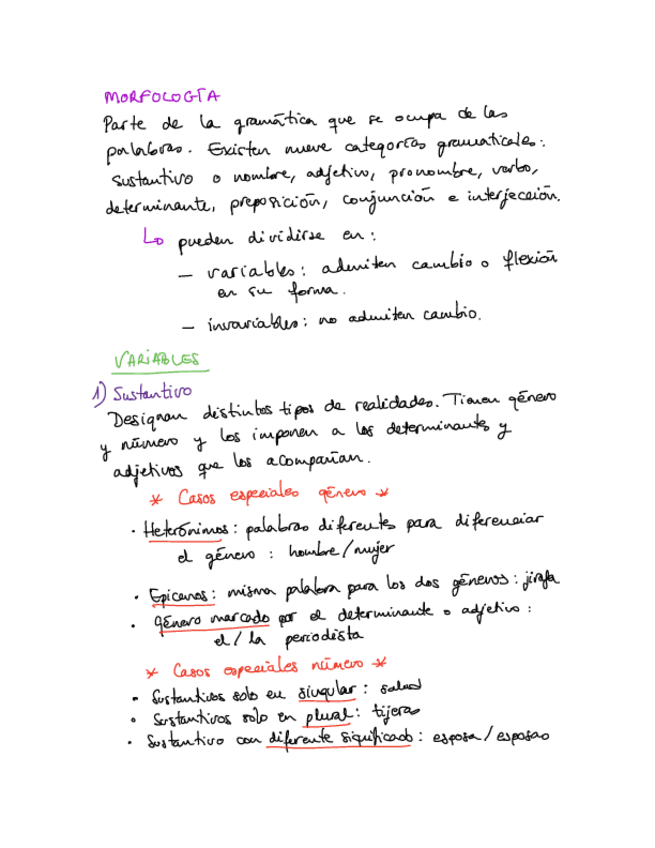 MORFOLOGÍA
Parte de la gramática que se ocupa de las
palabras. Existen nueve categorías gramaticales:
sustantivo o nombre, adjetivo, pronombre, verbo,
determinante, preposición, conjunción e interjección.
↳ pueden dividirse en:
– variables: admiten cambio o flexión
en su forma.
– invariables: no admiten cambio.
VARIABLES
1) Sustantivo
Designan distintos tipos de realidades. Tienen género
y número y los imponen a los determinantes y
adjetivos que los acompañan.
* Casos especiales género *
· Heterónimos: palabras diferentes para diferenciar
el género: hombre/mujer
· Epicenos: misma palabra para los dos géneros: jirafa
· género marcado por el determinante o adjetivo:
el/la periodista
* Casos especiales número *
· Sustantivos solo en singular: salud
· Sustantivos solo en plural: tijeras
· Sustantivo con diferente significado: esposa/esposas